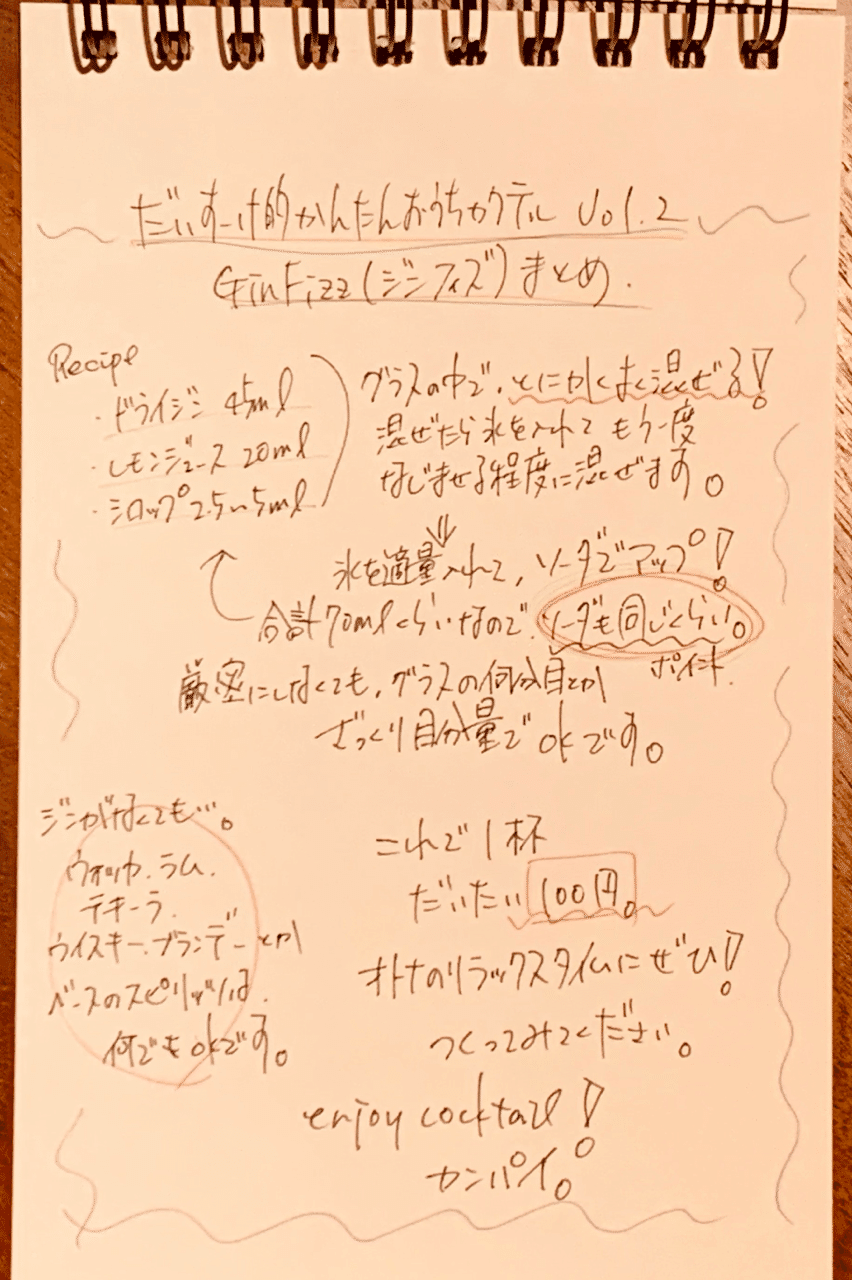 だいすーけ的かんたんおうちカクテル Vol.2
GinFizz(ジンフィズ)まとめ.
Recipe
・ドライジン 45ml
・レモンジュース 20ml
・シロップ 2.5〜5ml
グラスの中で、とにかくよく混ぜる!
混ぜたら氷を入れて もう一度
なじませる程度に混ぜます。
⇓
氷を適量入れて、ソーダでアップ!
合計70mlくらいなので、ソーダも同じくらい。
ポイント.
厳密にしなくても、グラスの何分目とか
ざっくり自分量でokです。
ジンがなくても…。
ウォッカ.ラム.
テキーラ.
ウイスキー.ブランデーとか
ベースのスピリッツは.
何でもokです。
これで1杯
だいたい 100円。
オトナのリラックスタイムにぜひ!
つくってみてください。
enjoy cocktail!
カンパイ。